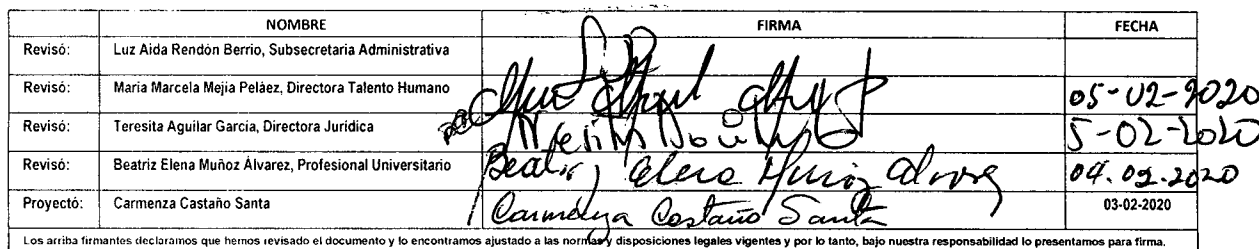 NOMBRE FIRMA FECHA
Revisó: Luz Aida Rendón Berrio, Subsecretaria Administrativa
Revisó: Maria Marcela Mejia Peláez, Directora Talento Humano 05-02-2020
Revisó: Teresita Aguilar García, Directora Jurídica Teresita 5-02-2020
Revisó: Beatriz Elena Muñoz Álvarez, Profesional Universitario Beatriz Elena Muñoz Alvarez 04.02.2020
Proyectó: Carmenza Castaño Santa Carmenza Castaño Santa 03-02-2020
Los arriba firmantes declaramos que hemos revisado el documento y lo encontramos ajustado a las normas y disposiciones legales vigentes y por lo tanto, bajo nuestra responsabilidad lo presentamos para firma.